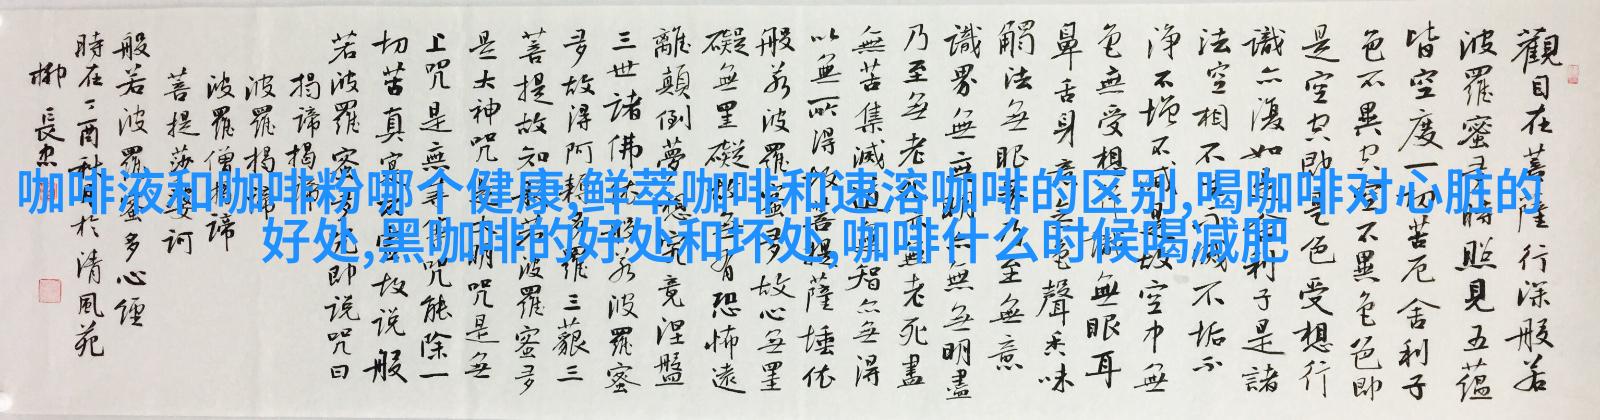 咖啡液和咖啡粉哪个健康,鲜萃咖啡和速溶咖啡的区别,喝咖啡对心脏的
好处,黑咖啡的好处和坏处,咖啡什么时候喝减肥
觀自在菩薩行深般若
波羅蜜多時照見五蘊
皆空度一切苦厄舍利子
色不異空空不異色色即
是空空即是色受想行
識亦復如是舍利子是諸
法空相不生不滅不垢不
淨不增不減是故空中無
色無受想行識無眼耳
鼻舌身意無色聲香味
觸法無眼界乃至無意
識界無無明亦無無明盡
乃至無老死亦無老死盡
無苦集滅道無智亦無得
以無所得故菩提薩埵依
般若波羅蜜多故心無罣
礙無罣礙故無有恐怖遠
離顛倒夢想究竟涅盤
三世諸佛依般若波羅蜜
多故得阿耨多羅三藐三
菩提故知般若波羅蜜多
是大神咒是大明咒是無
上咒是無等等咒能除一
切苦真實不虛故説般
若波羅蜜多咒即説咒曰
揭諦揭諦
波羅揭諦
波羅僧揭諦
菩提莎婆訶
般若波羅蜜多心經
時在丁酉秋月於清風苑
柳長忠